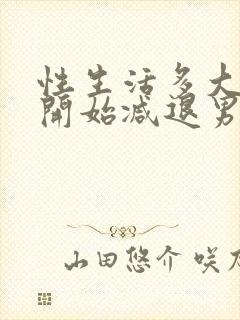 性生活多大
開始减退男
山田悠介 咲乃